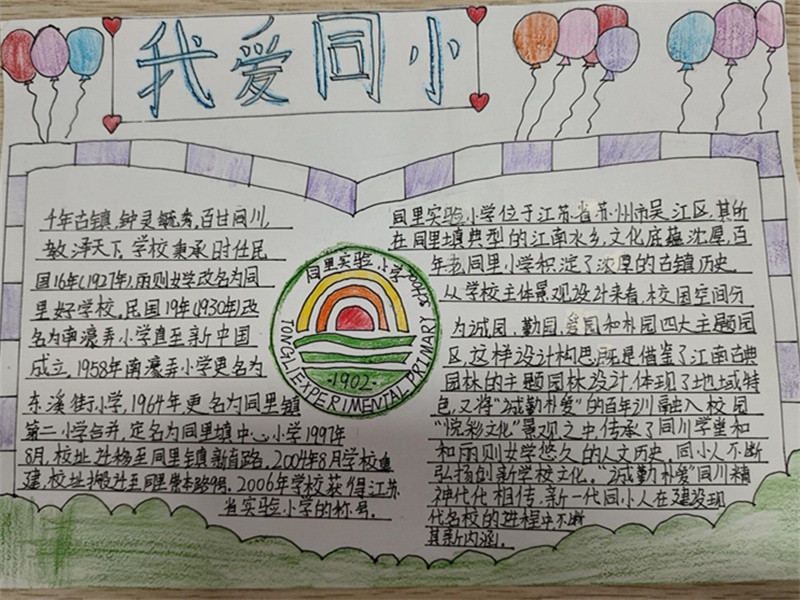 我爱同小
千年古镇,钟灵毓秀,百廿同川,
教泽天下,学校秉承时任民
国16年(1927年),丽则女学改名为同
里女子学校。民国19年(1930年)改
名为南濠弄小学直至新中国
成立,1958年南濠弄小学更名为
东溪街小学,1964年更名为同里镇
第二小学合并,定名为同里镇中心小学1997年
8月,校址外移至同里镇新育路。2004年8月学校重
建,校址搬迁至同里崇本路。2006年学校获得江苏
省实验小学的称号。
同里实验小学
TONGLI EXPERIMENTAL PRIMARY
·1902·
同里实验小学位于江苏省苏州市吴江区,其所
在同里镇典型的江南水乡,文化底蕴沈厚,百
年老同里小学积淀了浓厚的古镇历史。
从学校主体景观设计来看,校园空间分
为诚园、勤园、爱园和朴园四大主题园
区,这样设计构思,既是借鉴了江南古典
园林的主题园林设计,体现了地域特
色,又将“诚勤朴爱”的百年训融入校园
“悦彩文化”景观之中传承了同川学堂和
和丽则女学悠久的人文历史。同小人不断
弘扬创新学校文化。“诚勤朴爱”同川精
神代代相传,新一代同小人在建设现
代名校的进程中不断
其新内涵。